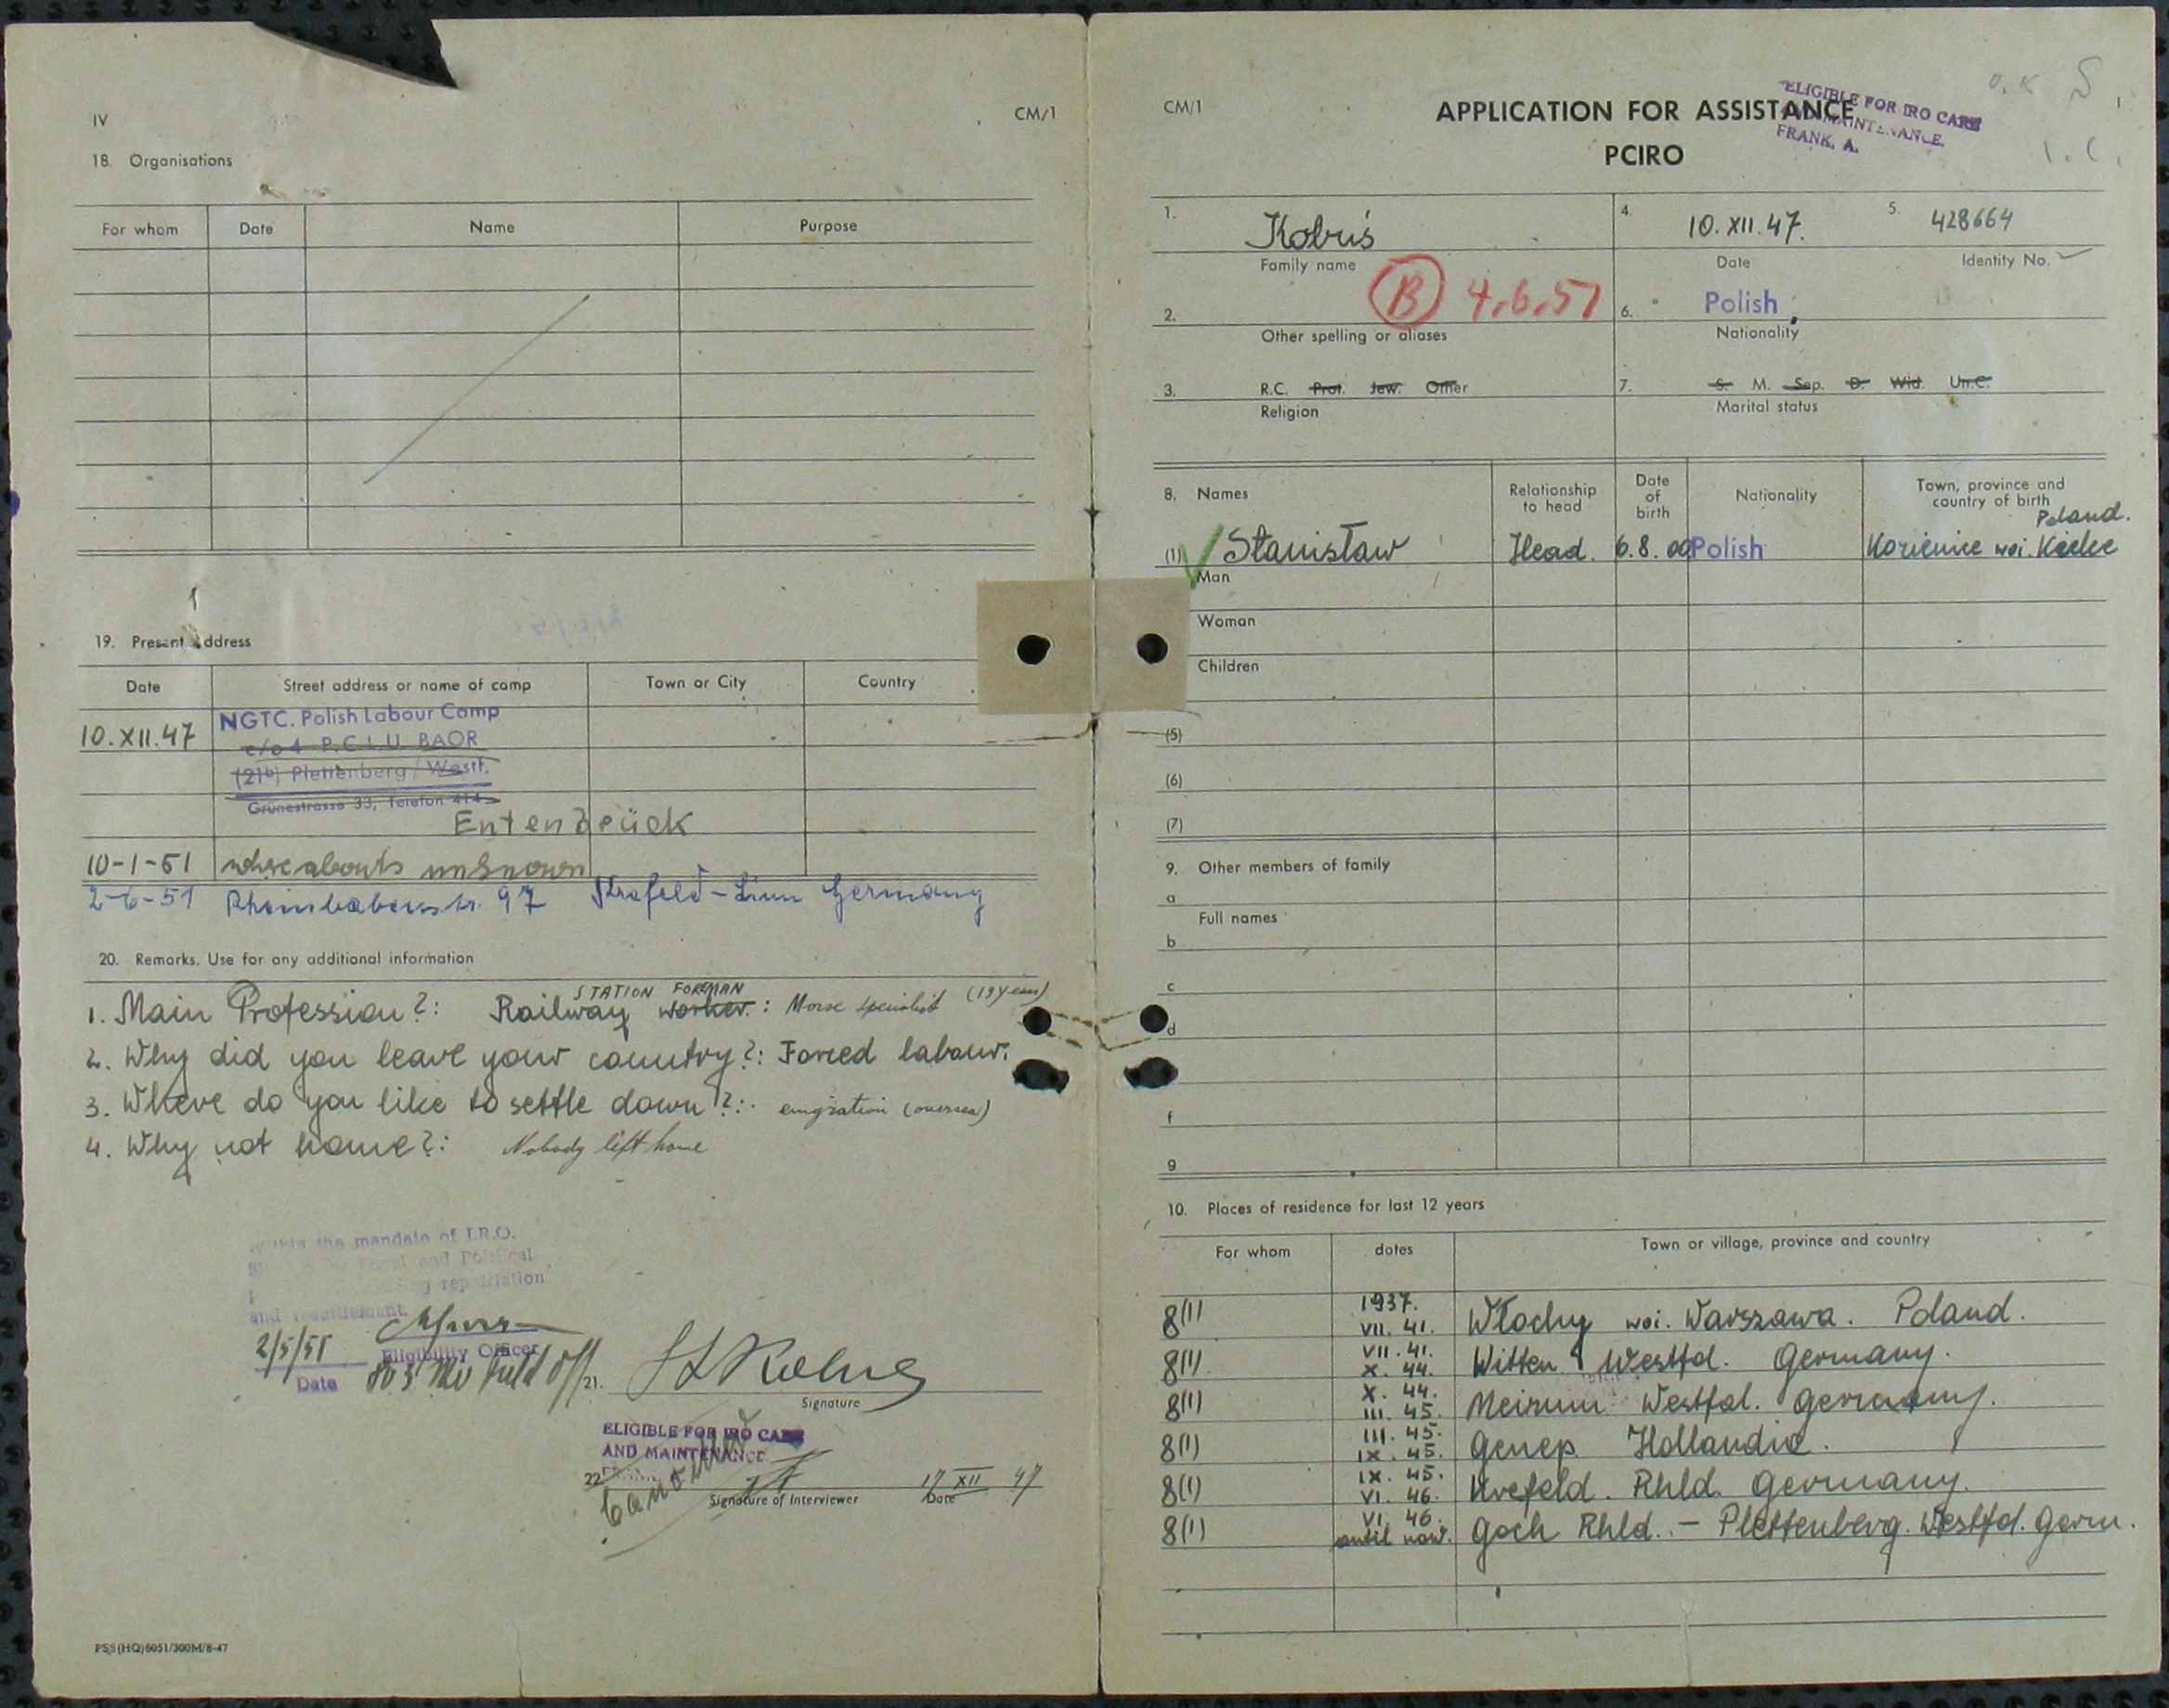 IV
CM/1
18. Organisations
For whom Date Name Purpose
19. Present Address
Date Street address or name of camp Town or City Country
10.XII.47 NGTC. Polish Labour Camp
c/o 4 P.C.L.U. BAOR
(21b) Plettenberg/Westf.
Grünestrasse 33, Telefon 414
Entenbrück
10-1-51 whereabouts unknown
2-6-51 97 Krefeld-Linn Germany
20. Remarks. Use for any additional information
STATION FOREMAN
1. Main Profession?: Railway worker: Morse specialist (19 years)
2. Why did you leave your country?: Forced labour.
3. Where do you like to settle down?: emigration (oversea)
4. Why not home?: Nobody left home
within the mandate of I.R.O.
and Political
repatriation
and resettlement.
Eligibility Officer
2/5/51
Date
21.
Signature
ELIGIBLE FOR IRO CARE
AND MAINTENANCE
22.
17 XII 47
Signature of Interviewer Date
Cancelled
PSS(HQ)6051/300M/8-47
CM/1
APPLICATION FOR ASSISTANCE
PCIRO
ELIGIBLE FOR IRO CARE
AND MAINTENANCE.
FRANK, A.
O.K S.
1.
Kobuś
Family name
4. 10.XII.47.
Date
5. 428664
Identity No.
B 4.6.51
2.
Other spelling or aliases
6. Polish
Nationality
3. R.C. Prot. Jew. Other
Religion
7. S. M. Sep. D. Wid. Un.C.
Marital status
8. Names Relationship to head Date of birth Nationality Town, province and country of birth
Poland.
(1) Stanisław Head. 6.8.00 Polish Kozienice woi. Kielce
Man
Woman
Children
(5)
(6)
(7)
9. Other members of family
a
Full names
b
c
d
f
g
10. Places of residence for last 12 years
For whom dates Town or village, province and country
8(1) 1937. VII.41. Włochy woi. Warszawa. Poland.
8(1) VII.41. X.44. Witten Westfd. Germany.
8(1) X.44. III.45. Westfal. Germany.
8(1) III.45. IX.45. Genep Hollandia.
8(1) IX.45. VI.46. Krefeld. Rhld. Germany.
8(1) VI.46. until now. Goch Rhld. - Plettenberg. Westfd. Germ.